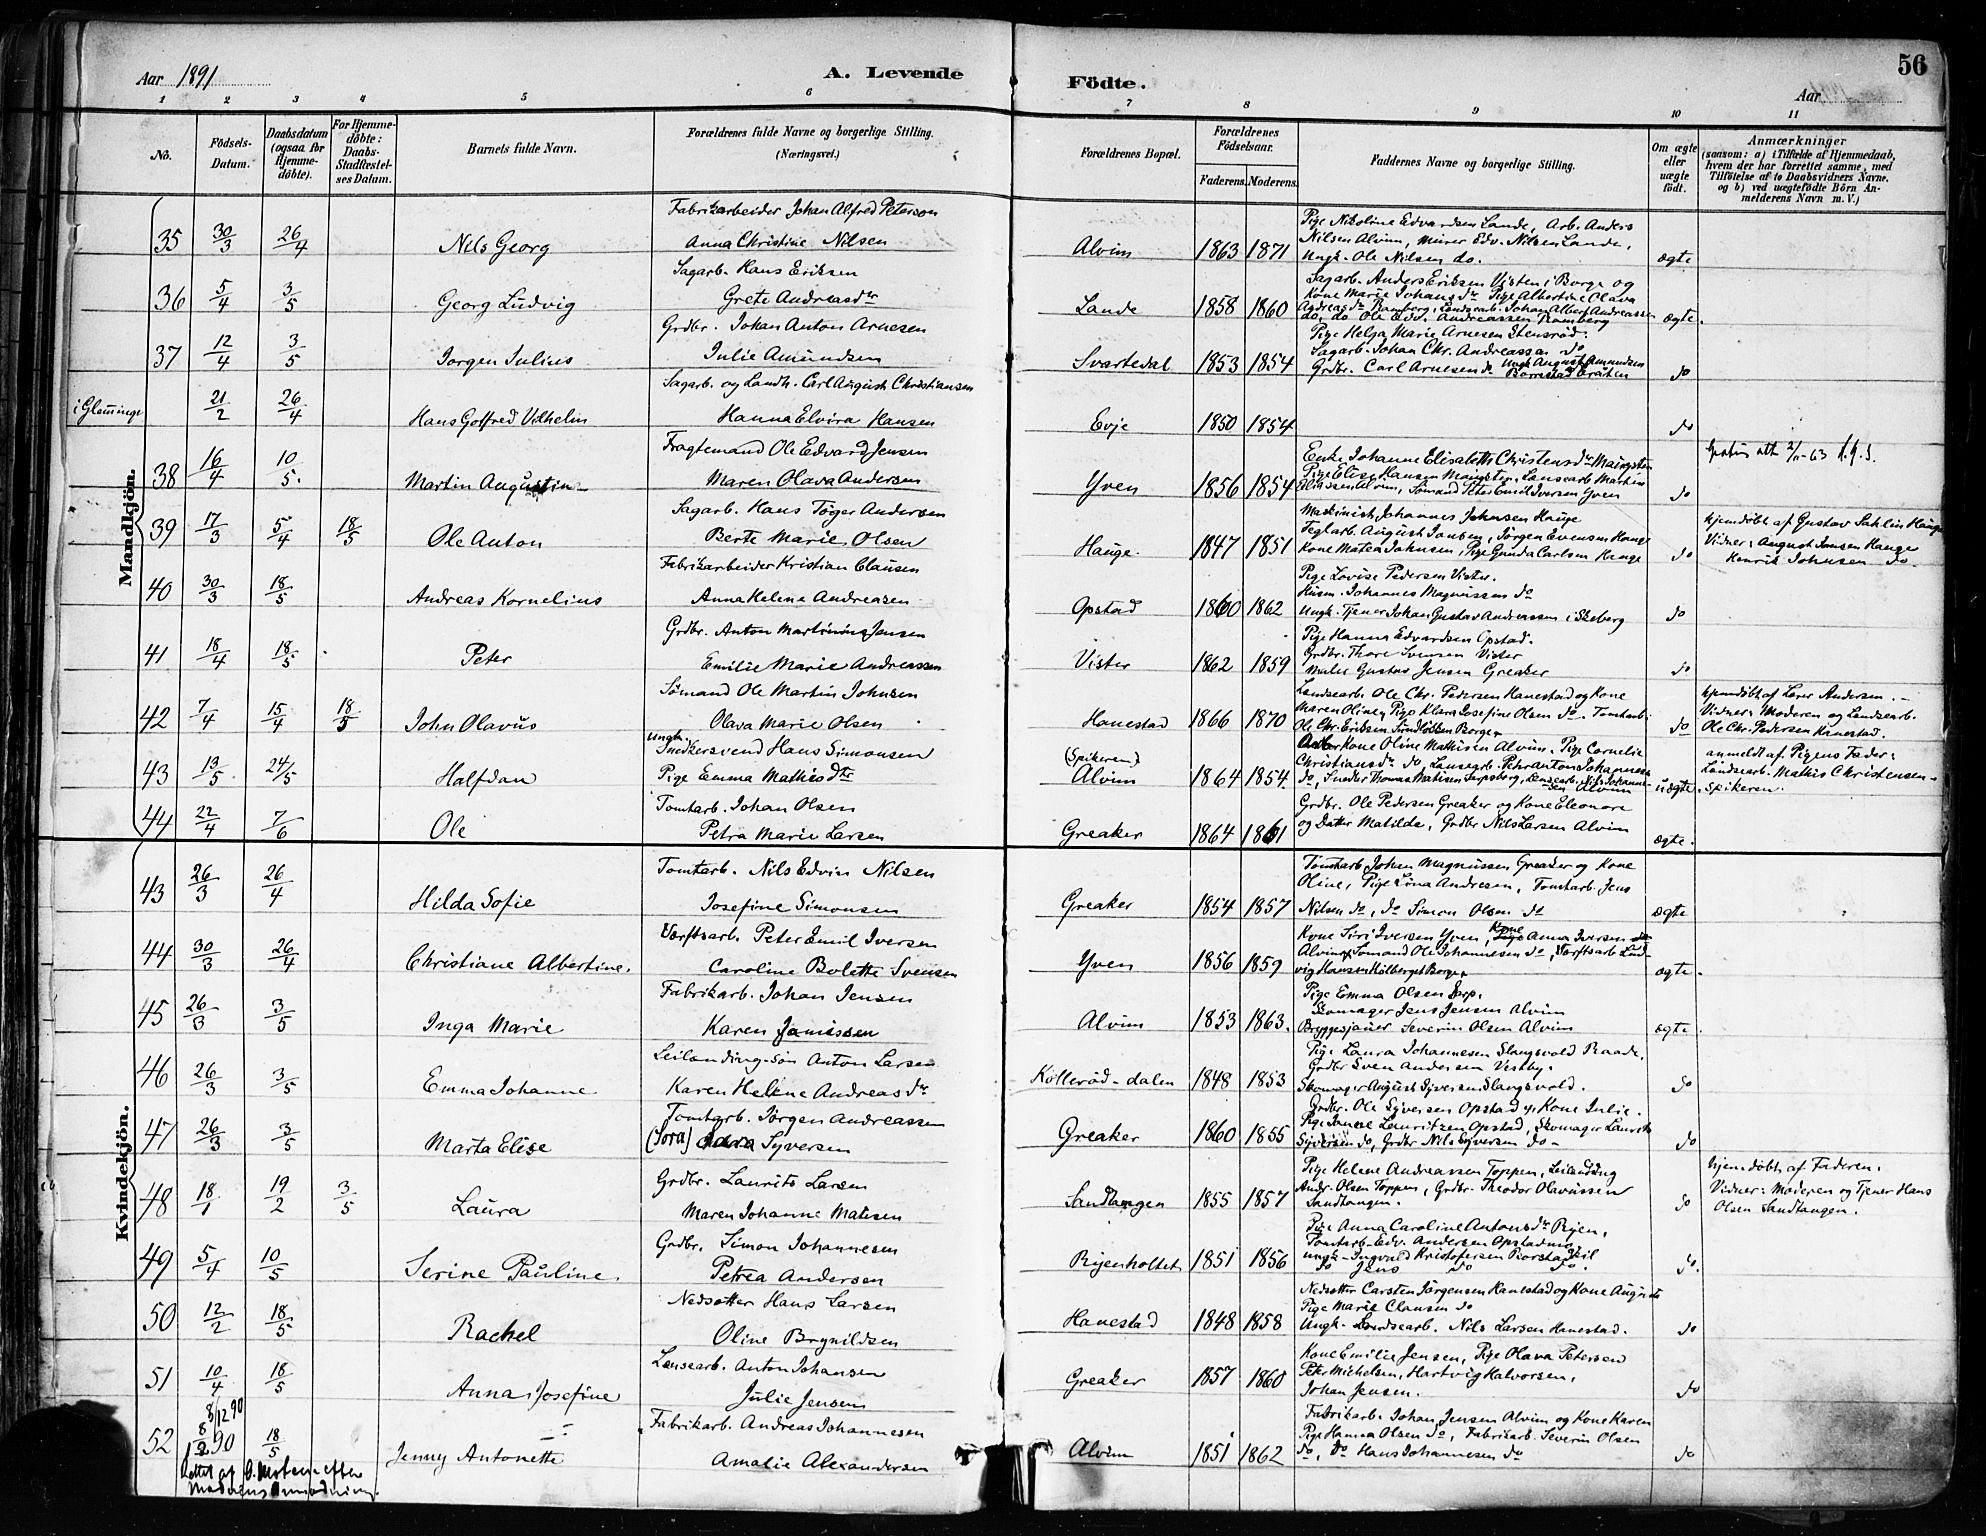 Aar 1891
A. Levende
Födte.
Aar
56
1 2 3 4 5 6 7 8 9 10 11
No.
Födsels-Datum.
Daabsdatum (ogsaa for Hjemmedöbte).
For Hjemmedöbte: Daabs-Stadfæstelses Datum.
Barnets fulde Navn.
Forældrenes fulde Navne og borgerlige Stilling. (Næringsvei.)
Forældrenes Bopæl.
Forældrenes Födselsaar.
Faderens. Moderens.
Faddernes Navne og borgerlige Stilling.
Om ægte eller uægte födt.
Anmærkninger (saasom: a) i Tilfælde af Hjemmedaab, hvem der har forrettet samme, med Tilföielse af to Daabsvidners Navne. og b) ved uægtefödte Börn Anmelderens Navn m. V.)
Mandkjön.
35 30/3 26/4 Nils Georg
Fabrikarbeider Johan Alfred Peterson
Anna Christine Nilsen
Alvim 1863 1871
Pige Nikoline Edvardsen Lande, Arb. Anders
Nilsen Alvim, Murer Edv. Nilsen Lande,
Ungk. Ole Nilsen do.
ægte
36 5/4 3/5 Georg Ludvig
Sagarb. Hans Eriksen
Grete Andreasdr
Lande 1858 1860
Sagarb. Anders Eriksen Visten i Borge og
Kone Marie Johansdr Pige Albertine Olava
Andreasdr Ramberg, Landsarb. Johan Albert Andreassen
do, do Ole Edv. Andreassen Ramberg
ægte.
37 12/4 3/5 Jorgen Julius
Grdbr. Johan Anton Arnesen
Julie Amundsen
Svartedal 1853 1854
Pige Helga Marie Arnesen Stensrød.
Sagarb. Johan Chr. Andreassen do
Grdbr. Carl Arnesen do Ungk August Amundsen
do
i Glemminge 21/2 26/4 Hans Gotfred Vilhelm
Sagarb. og Landh. Carl August Christiansen
Hanna Elvira Hansen
Evje 1850 1854 do
38 16/4 10/5. Martin Augustin
Fragtemand Ole Edvard Jensen
Maren Olava Andersen
Yven 1856 1854
Enke Johanne Elisabeth Christensdr
Pige Elise Hansen, Landsarb Martin
Eliassen Alvim, Sømand Peter Emil Iversen Yven
do
39 17/3 5/4 18/5 Ole Anton
Sagarb. Hans Töger Andersen
Berte Marie Olsen
Hauge. 1847 1851
Maskinist Johannes Johnsen Hauge
Teglarb. August Jansen, Jørgen Evensen Hauge
Kone Matea Johnsen, Pige Gunda Carlsen Hauge
do
hjemdøbt af Gustav Sahlin Hauge
Vidner: August Jansen Hauge
Henrik Johnsen do
40 30/3 18/5 Andreas Kornelius
Fabrikarbeider Kristian Clausen
Anna Helene Andreasen
Opstad 1860 1862
Pige Lovise Pedersen Vister.
Husm. Johannes Magnussen do
Ungk. Tjener Johan Gustav Andreassen i Skeberg
do
41 18/4 18/5 Peter
Grdbr. Anton Martinius Jensen
Emilie Marie Andreassen
Vister 1862 1859
Pige Hanna Edvardsen Opstad.
Grdbr. Thore Svensen Vister
Maler Gustav Jensen Greaker
do
42 7/4 15/4 18/5 John Olavus
Sömand Ole Martin Johnsen
Olava Marie Olsen
Hanestad 1866 1870
Landsarb. Ole Chr. Pedersen Hanestad og Kone
Maren Oline, Pige Klara Josefine Olsen do. Tomtarb.
Ole Chr. Eriksen Sundløkken Borge
do
hjemdøbt af Lærer Andersen. -
Vidner: Moderen og Landsarb.
Ole Chr. Pedersen Hanestad.
43 13/5. 24/5 Halfdan
Ungk. Snedkersvend Hans Simonsen
Pige Emma Mathisdtr
(Spikeren) Alvim 1864 1854.
Kone Oline Mathisen Alvim, Pige Cornelie
Christiansdr do, Landsarb. Pehr Anton Johannesen
do, Snedker Thomas Matisen Sarpsborg, Landsarb. Nils Johannesen Alvim
uægte.
anmeldt af Pigens Fader:
Landsarb. Mathis Christensen-
Spikeren.
44 22/4 7/6 Ole
Tomtarb. Johan Olsen
Petra Marie Larsen
Greaker 1864 1861
Grdbr. Ole Pedersen Greaker og Kone Eleonore
og Datter Matilde, Grdbr Nils Larsen Alvim
ægte.
Kvindekjön.
43 26/3 26/4 Hilda Sofie
Tomtarb. Nils Edvin Nilsen
Josefine Simonsen
Greaker 1854 1857
Tomtarb Johan Magnussen Greaker og Kone
Oline, Pige Lina Andresen, Tomtarb. Jens
Nilsen do, do Simon Olsen do
ægte
44 30/3 26/4 Christiane Albertine.
Værftsarb. Peter Emil Iversen
Caroline Bolette Svensen
Yven 1856 1859
Kone Siri Iversen Yven, Kone Pige Anna Iversen do
Alvim, Sømand Ole Johannesen do, Værftsarb Ludvig Hansen Kølberget Borge.
ægte.
45 26/3 3/5 Inga Marie
Fabrikarb. Johan Jensen
Karen Janissen
Alvim 1853 1863.
Pige Emma Olsen Sarp.
Skomager Jens Jensen Alvim
Bryggesjauer Severin Olsen Alvim
ægte.
46 26/3 3/5 Emma Johanne
Leilending-søn Anton Larsen
Karen Helene Andreasdr
Kollerød-dalen 1848 1853
Pige Laura Johannesen Slangsvold Raade.
Grdbr Sven Andersen Vestby.
Skomager August Syversen Slangsvold.
do
47 26/3 3/5 Marta Elise
Tomtarb. Jørgen Andreassen
(Tora) Syversen
Greaker 1860 1855
Grdbr. Ole Syversen Opstad og Kone Julie.
Lauritzen Opstad, Skomager Laurits
Syversen do, Grdbr Nils Syversen do-
do
48 18/1 19/2 3/5 Laura
Grdbr. Laurits Larsen
Maren Johanne Matisen
Sandtangen 1855 1857
Pige Helene Andreassen Toppen, Leilending
Andr. Olsen Toppen, Grdbr. Theodor Olavussen
Sandtangen.
do
hjemdøbt af Faderen.
Vidner: Moderen og Tjener Hans
Olsen Sandtangen.
49 5/4 10/5 Serine Pauline.
Grdbr. Simon Johannesen
Petrea Andersen
Rijenholtet 1851 1856
Pige Anna Caroline Antonsdr Rijen,
Tomtarb. Edv. Andersen Opstad
Ungk. Ingvald Kristofersen
do Jens do do.
do.
50 12/2 18/5 Rachel
Nedsætter Hans Larsen
Oline Brynildsen
Hanestad 1848 1858
Nedsætter Carsten Jørgensen Hanestad og Kone Auguste
Pige Marie Clausen do
Ungk. Landsearb. Nils Larsen Hanestad.
do
51 10/4 18/5 Anna Josefine
Lansearb. Anton Johansen
Julie Jensen
Greaker 1857 1860
Kone Emilie Jensen, Pige Olava Petersen
Peter Michelsen, Hartvig Halvorsen,
Johan Jensen.
do
52 8/12 90 18/5 Jenny Antonette
Fabrikarb. Andreas Johannesen
Amalie Alexandersen
Alvim 1851 1862
Fabrikarb. Johan Jensen Alvim og Kone Karen
Pige Hanna Olsen do, Fabrikarb. Severin Olsen
do, do Hans Johannesen do
do
Rettet af efter
Moderens Anmodning.